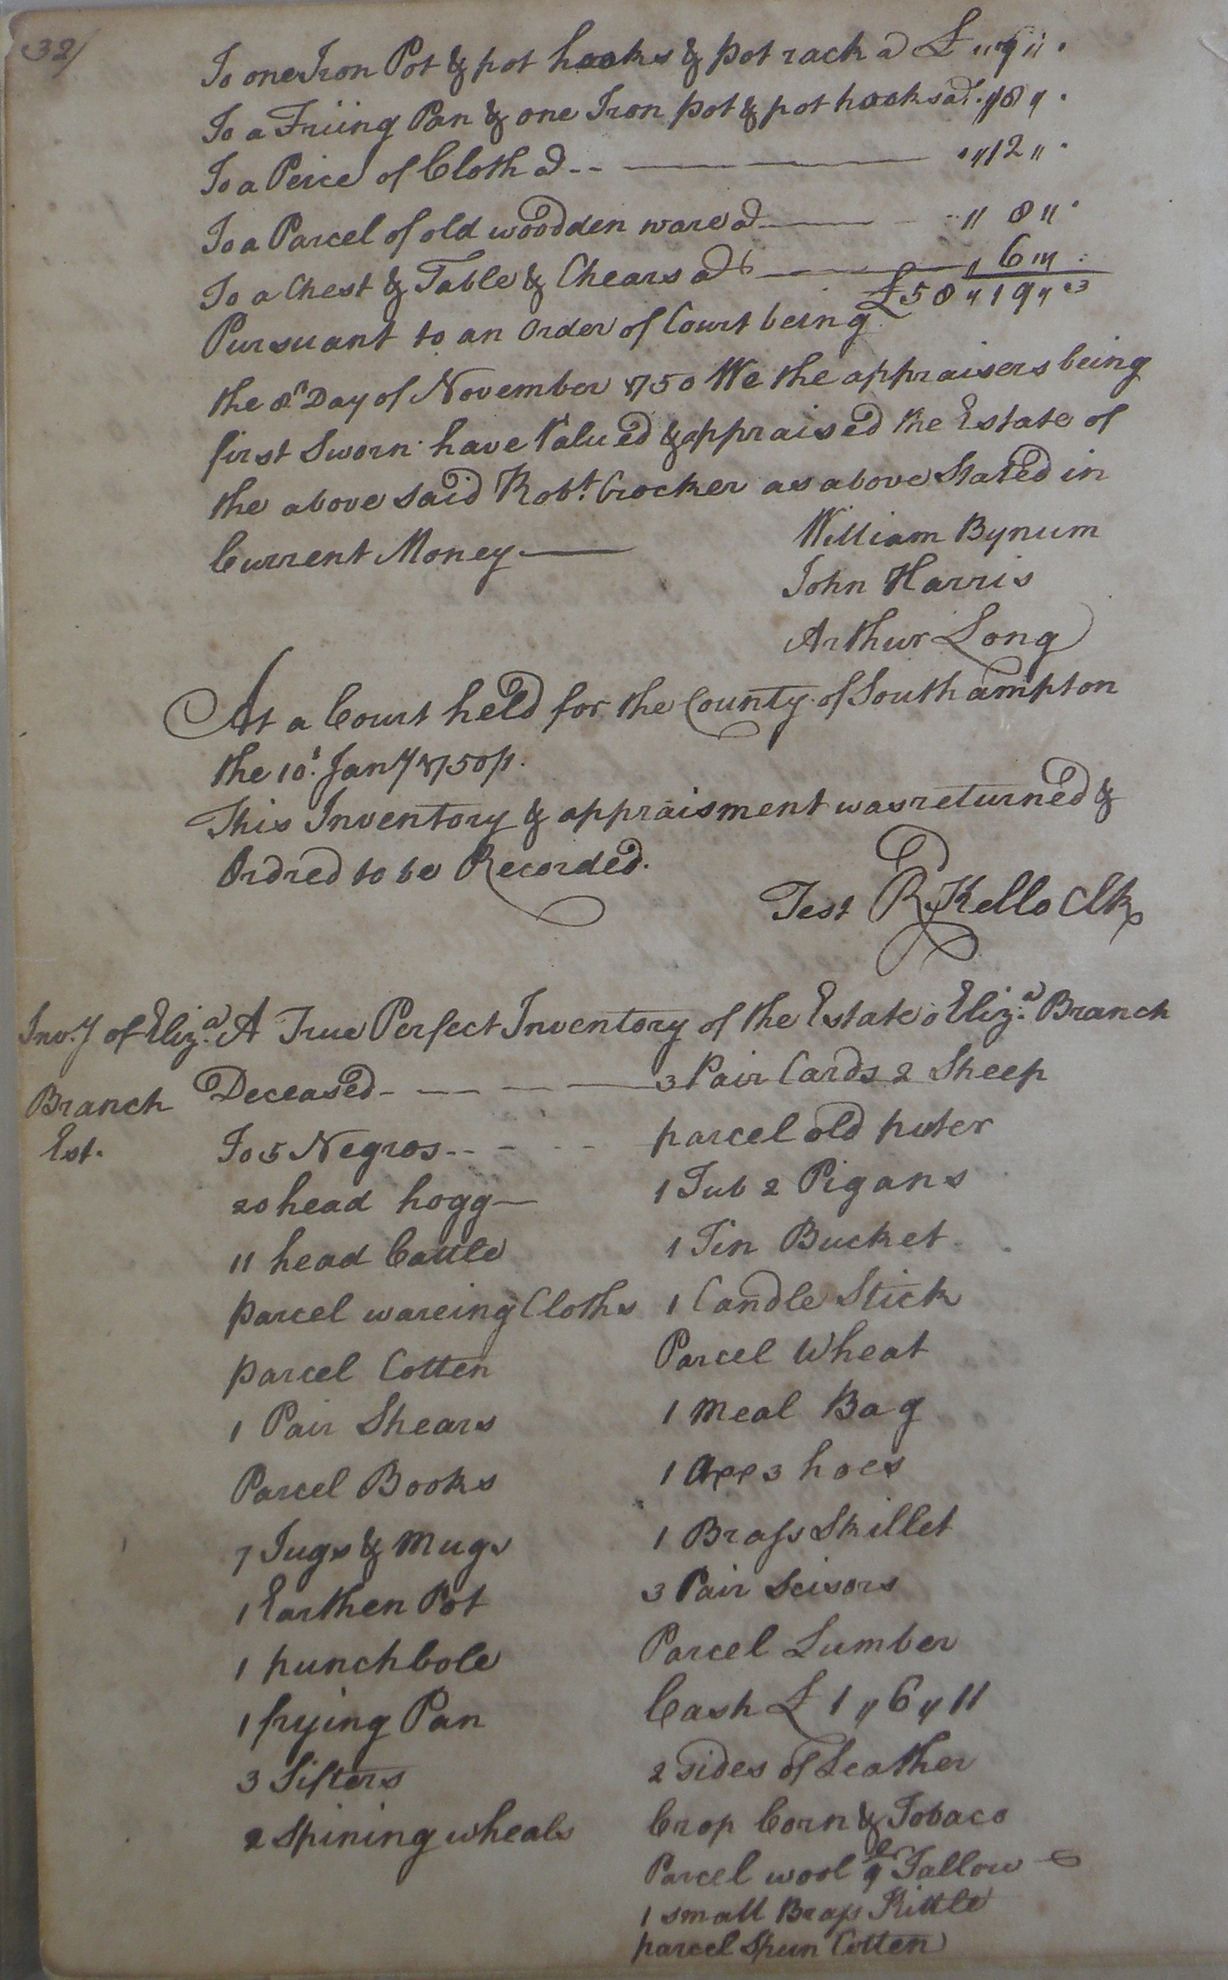 32/
To one Iron Pot & pot hooks & pot rack a £ " 9 " .
To a Friing Pan & one Iron pot & pot hooks ad . " 18 " .
To a Peice of Cloth ad -- — . " 12 " .
To a Parcel of old woodden ware ad — " 8 " .
To a Chest & Table & Chears ad — " 6 " .
£58 " 19 " 3
Pursuant to an Order of Court being
the 8t Day of November 1750 We the appraisers being
first Sworn have Valued & appraised the Estate of
the above said Robt. Crocker as above Stated in
Current Money —
William Bynum
John Harris
Arthur Long
At a Court held for the County of Southampton
the 10t. Jany 1750/1.
This Inventory & appraisment was returned &
Ordred to be Recorded.
Test R Kello Clk
Inv.y of Eliz.a Branch Est.
A True Perfect Inventory of the Estate o Eliz.a Branch
Deceased - — — —
To 5 Negros -- - - -
20 head hogg —
11 head Cattle
parcel wareing Cloths
parcel Cotten
1 Pair Shears
Parcel Books
7 Jugs & Mugs
1 Earthen Pot
1 punch bole
1 frying Pan
3 Sifters
2 Spining wheals
3 Pair Cards 2 Sheep
parcel old puter
1 Tub 2 Pigans
1 Tin Bucket
1 Candle Stick
Parcel Wheat
1 meal Bag
1 axe 3 hoes
1 Brass Skillet
3 Pair Scisors
Parcel Lumber
Cash £ 1 " 6 " 11
2 sides of Leather
Crop Corn & Tobaco
Parcel wool & Tallow
1 small Brass Kittle
parcel Spun Cotten